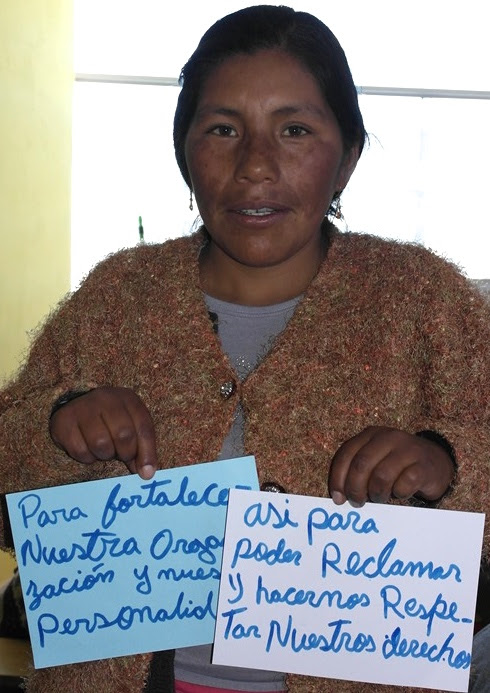 Para fortalece-
Nuestra Oroga
zación y nues
Personalid
asi para
poder Reclamar
y hacernos Respe-
tar Nuestros derechos